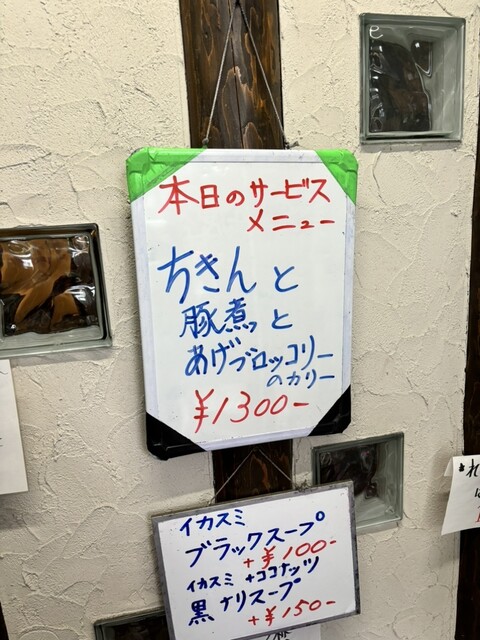 本日のサービス
メニュー
ちきんと
豚煮と
あげブロッコリー
のカリー
¥1300-
イカスミ
ブラックスープ
+¥100-
イカスミ+ココナッツ
黒ナリスープ
+¥150-